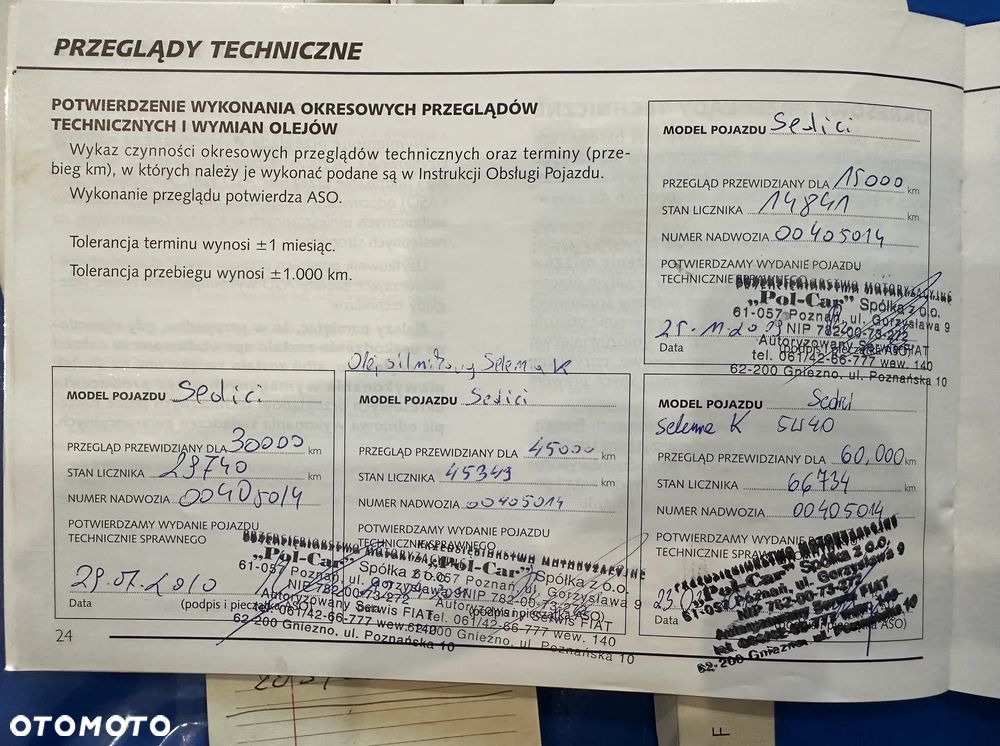 PRZEGLĄDY TECHNICZNE
POTWIERDZENIE WYKONANIA OKRESOWYCH PRZEGLĄDÓW
TECHNICZNYCH I WYMIAN OLEJÓW
Wykaz czynności okresowych przeglądów technicznych oraz terminy (prze-
bieg km), w których należy je wykonać podane są w Instrukcji Obsługi Pojazdu.
Wykonanie przeglądu potwierdza ASO.
Tolerancja terminu wynosi ±1 miesiąc.
Tolerancja przebiegu wynosi ±1.000 km.
MODEL POJAZDU Sedici
PRZEGLĄD PRZEWIDZIANY DLA 15000 km
STAN LICZNIKA 14841 km
NUMER NADWOZIA 00405014
POTWIERDZAMY WYDANIE POJAZDU
TECHNICZNIE SPRAWNEGO
PRZEDSIĘBIORSTWO MOTORYZACYJNE
„Pol-Car" Spółka z o.o.
61-057 Poznań, ul. Gorzysława 9
NIP 782-00-73-272
Autoryzowany Serwis FIAT
tel. 061/42-66-777 wew. 140
62-200 Gniezno, ul. Poznańska 10
Data
MODEL POJAZDU Sedici
PRZEGLĄD PRZEWIDZIANY DLA 30000 km
STAN LICZNIKA 29740 km
NUMER NADWOZIA 00405014
POTWIERDZAMY WYDANIE POJAZDU
TECHNICZNIE SPRAWNEGO
PRZEDSIĘBIORSTWO MOTORYZACYJNE
„Pol-Car"
61-057 Poznań, ul. Gorzysława 9
NIP 782-00-73-272
Autoryzowany Serwis FIAT
62-200 Gniezno, ul. Poznańska 10
29.07.2010
Data (podpis i pieczątka ASO)
Olej silnikowy Selenia K
MODEL POJAZDU Sedici
PRZEGLĄD PRZEWIDZIANY DLA 45000 km
STAN LICZNIKA 45349 km
NUMER NADWOZIA 00405014
POTWIERDZAMY WYDANIE POJAZDU
TECHNICZNIE SPRAWNEGO
PRZEDSIĘBIORSTWO MOTORYZACYJNE
„Pol-Car" Spółka z o.o.
61-057 Poznań, ul. Gorzysława 9
NIP 782-00-73-272
Autoryzowany Serwis FIAT
tel. 061/42-66-777 wew. 140
62-200 Gniezno, ul. Poznańska 10
Data (podpis i pieczątka ASO)
MODEL POJAZDU
Selenia K 5W40
PRZEGLĄD PRZEWIDZIANY DLA 60,000 km
STAN LICZNIKA 66734 km
NUMER NADWOZIA 00405014
POTWIERDZAMY WYDANIE
TECHNICZNIE
PRZEDSIĘBIORSTWO MOTORYZACYJNE
„Pol-Car" Spółka z o.o.
61-057 Poznań, ul. Gorzysława 9
NIP 782-00-73-272
Autoryzowany Serwis FIAT
62-200 Gniezno, ul. Poznańska 10
Data
24
F
OTOMOTO